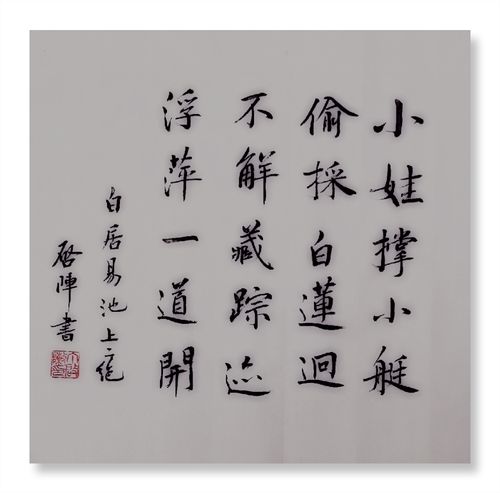 小娃撑小艇
偷採白蓮迴
不解藏踪迹
浮萍一道開
白居易池上二絶
啓陣書